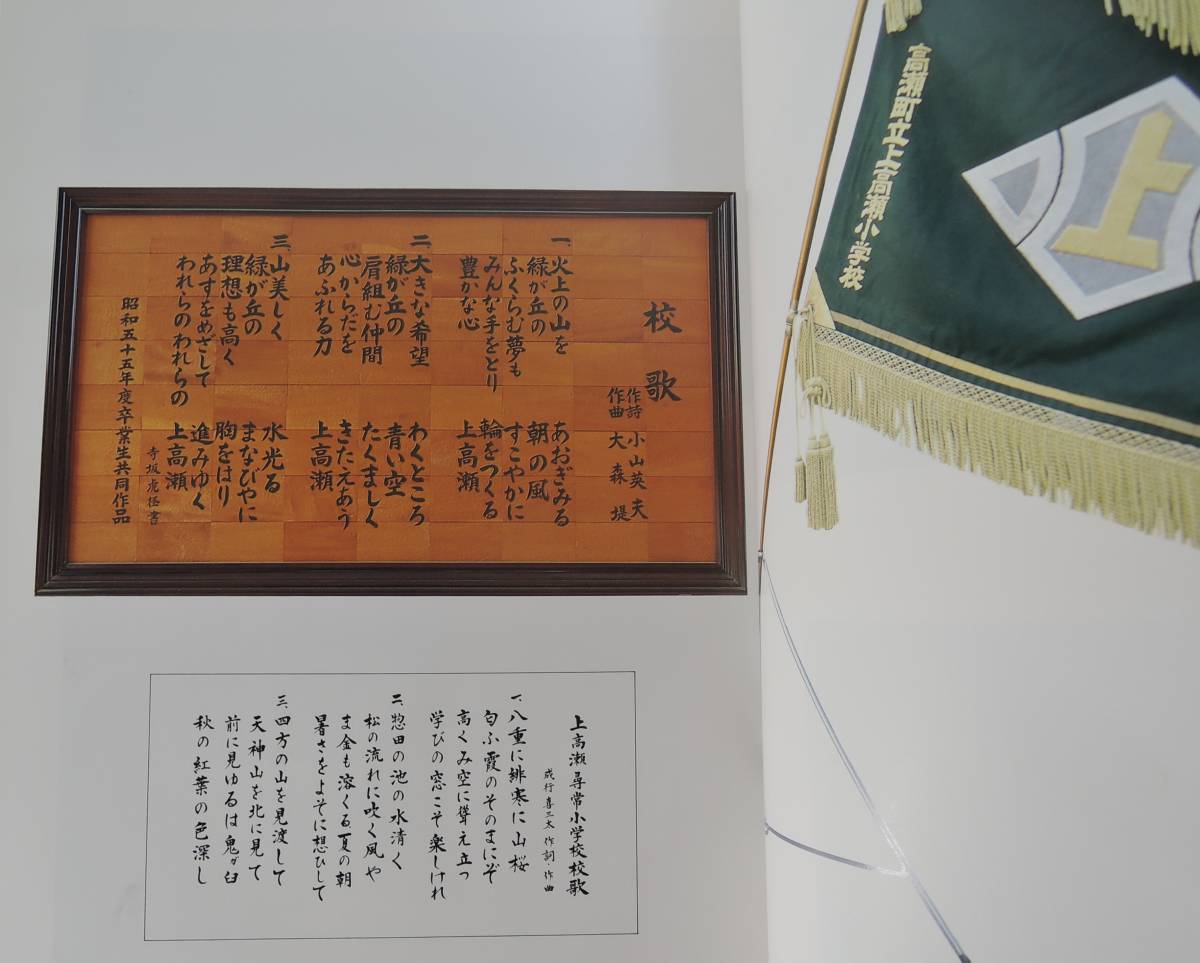 高瀬町立上高瀬小学校
上
校歌
作詩 小山英夫
作曲 大森 堤
一、火上の山を あおぎみる
緑が丘の 朝の風
ふくらむ夢も すこやかに
みんな手をとり 輪をつくる
豊かな心 上高瀬
二、大きな希望 わくところ
緑が丘の 青い空
肩組む仲間 たくましく
心からだを きたえあう
あふれる力 上高瀬
三、山美しく 水光る
緑が丘の まなびやに
理想も高く 胸をはり
あすをめざして 進みゆく
われらのわれらの 上高瀬
寺坂 書
昭和五十五年度卒業生共同作品
上高瀬尋常小学校校歌
成行喜三太 作詞・作曲
一、八重に緋寒に山桜
匂ふ霞のそのまにぞ
高くみ空に聳え立つ
学びの窓こそ楽しけれ
二、惣田の池の水清く
松の流れに吹く風や
ま金も溶くる夏の朝
暑さをよそに想ひして
三、四方の山を見渡して
天神山を北に見て
前に見ゆるは鬼ヶ臼
秋の紅葉の色深し